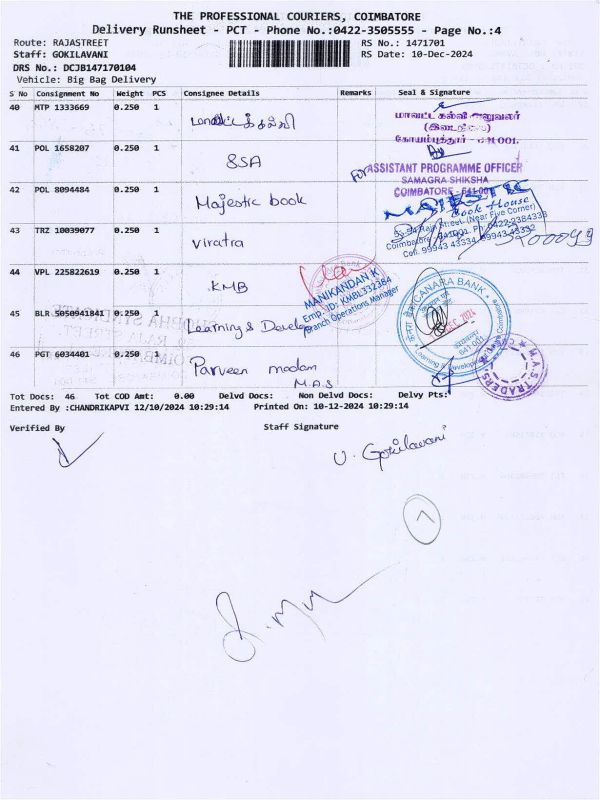 THE PROFESSIONAL COURIERS, COIMBATORE
Delivery Runsheet - PCT - Phone No.:0422-3505555 - Page No.:4
Route: RAJASTREET RS No.: 1471701
Staff: GOKILAVANI RS Date: 10-Dec-2024
DRS No.: DCJB147170104
Vehicle: Big Bag Delivery
S No Consignment No Weight PCS Consignee Details Remarks Seal & Signature
40 MTP 1333669 0.250 1 மாவட்டக்கல்வி
மாவட்ட கல்வி அலுவலர்
(இடைநிலை)
கோயம்புத்தூர் - 641 001.
41 POL 1658207 0.250 1 SSA
For ASSISTANT PROGRAMME OFFICER
SAMAGRA SHIKSHA
COIMBATORE - 641 001
42 POL 8094484 0.250 1 Majestic book
MAJESTIC
Book House
Raja Street, (Near Five Corner)
Coimbatore - 641001. Ph: 0422-2384333
Cell: 99943 43334, 99943 43332
43 TRZ 10039077 0.250 1 Viratra
44 VPL 225822619 0.250 1 KMB
MANIKANDAN K
Emp. ID: KMBL332364
Branch Operations Manager
CANARA BANK
DEC 2024
641 001
Learning & Develop
45 BLR 5050941841 0.250 1 Learning & Develop
46 PGT 6034401 0.250 1 Parveen madam
M.A.S
M.A.S TRADERS
Tot Docs: 46 Tot COD Amt: 0.00 Delvd Docs: Non Delvd Docs: Delvy Pts:
Entered By :CHANDRIKAPVI 12/10/2024 10:29:14 Printed On: 10-12-2024 10:29:14
Verified By Staff Signature
V. Gokilavani
7